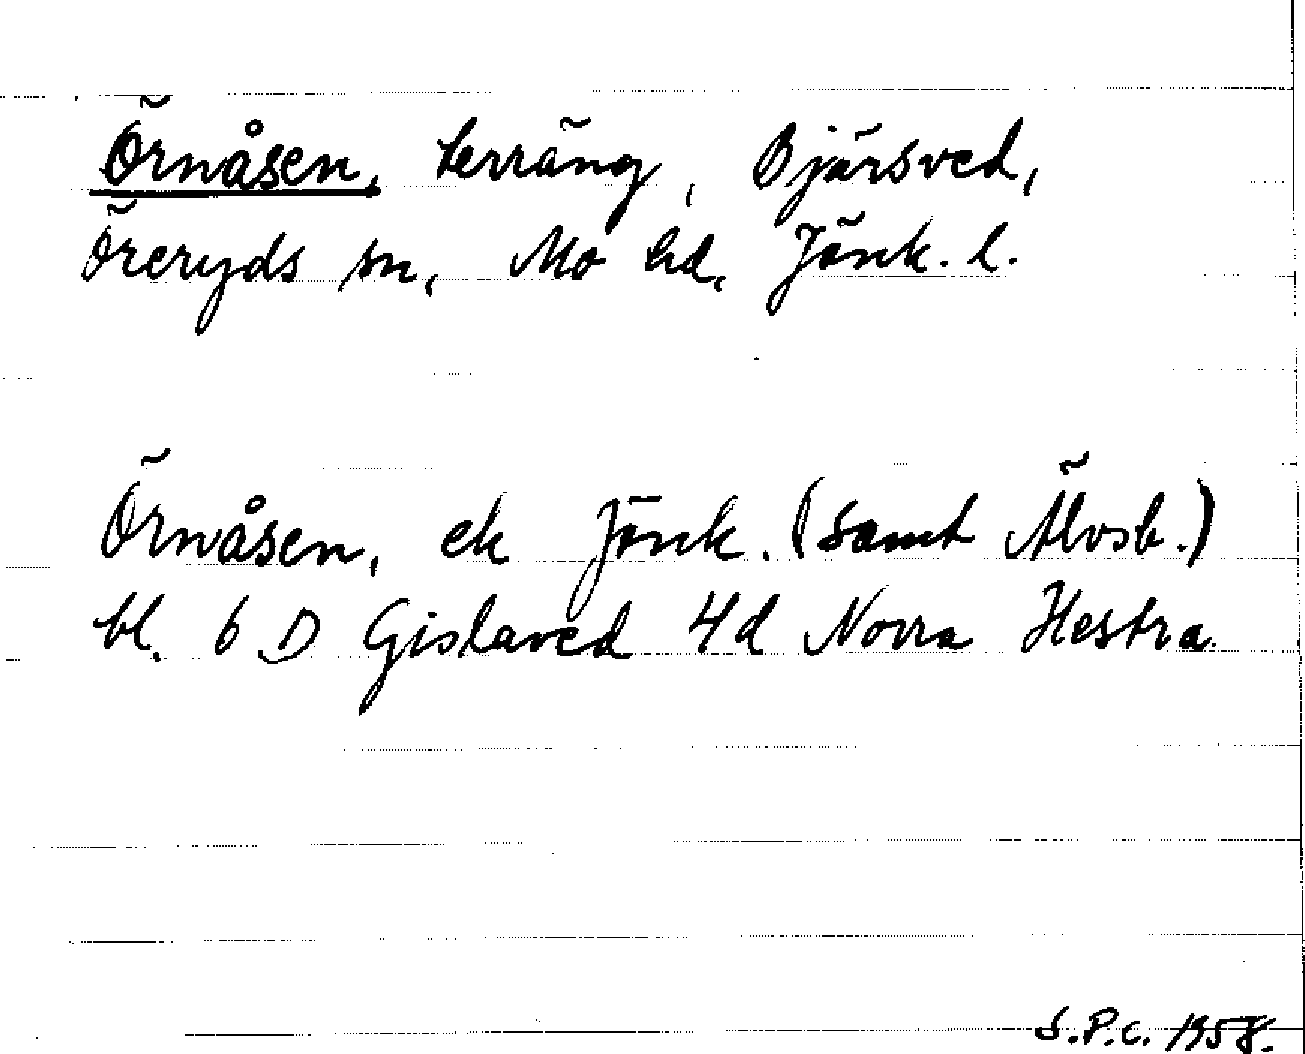 Örnåsen, terräng, Bjärsved,
Öreryds sn, Mo hd, Jönk. l.
Örnåsen, ek Jönk. (samt Älvsb.)
bl. 6 D Gislaved 4d Norra Hestra.
S.P.C. 1958.